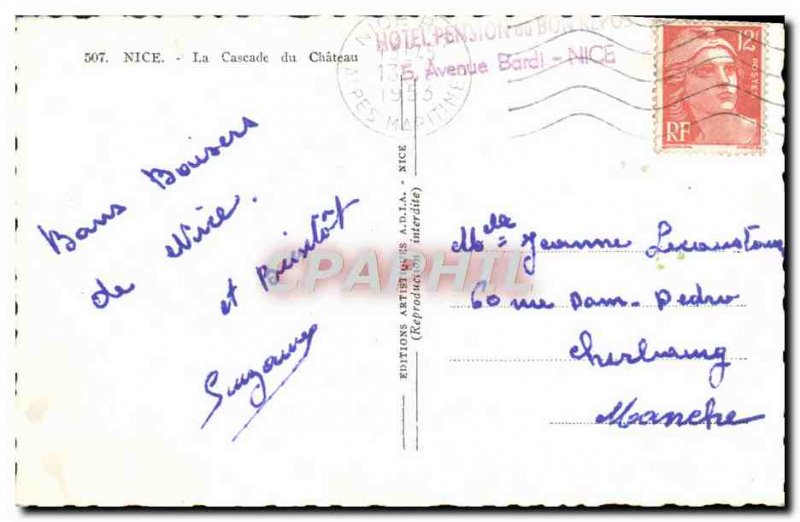 507. NICE. - La Cascade du Château
NICE R.P.
13
1953
ALPES MARITIMES
HOTEL PENSION du BON REPOS
5, Avenue Bardi - NICE
12F
POSTES
RF
Bons Baisers
de Nice.
et Bientôt
Suzanne
EDITIONS ARTISTIQUES A.D.I.A. - NICE
(Reproduction interdite)
CPARPHIL
Melle Jeanne
60 rue Dom-Pedro
Cherbourg
Manche